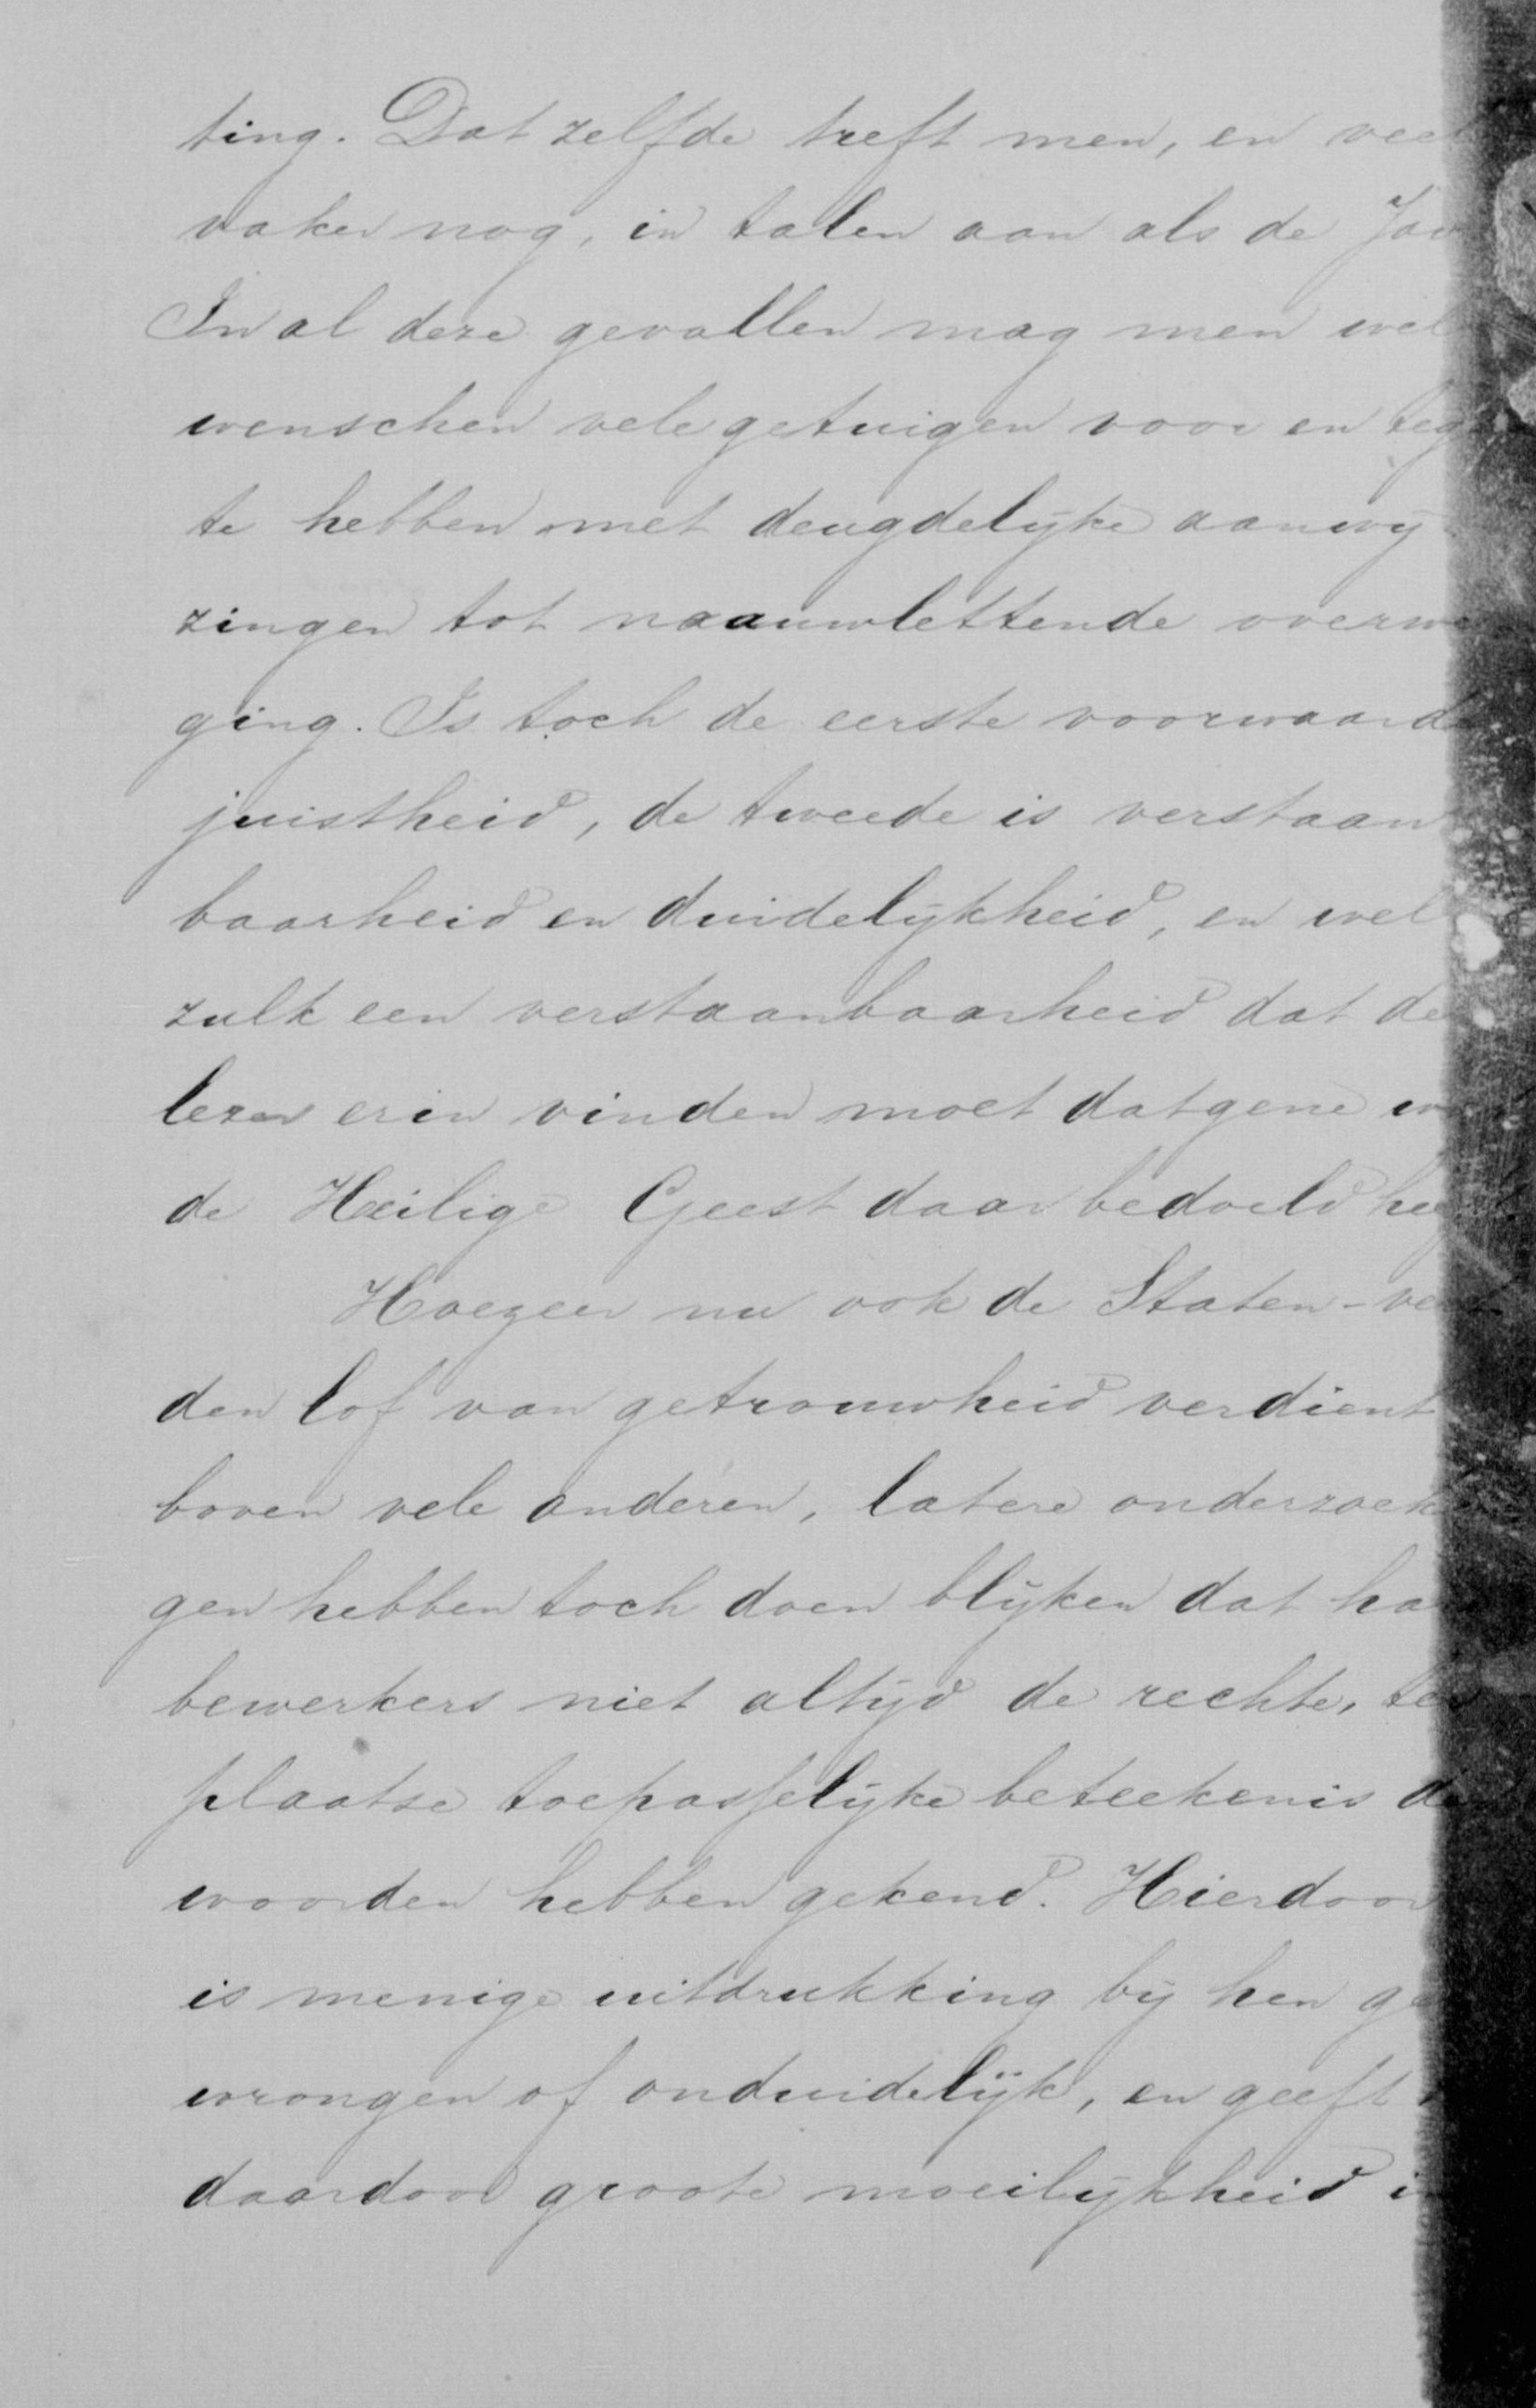 ting. Dat zelfde treft men, en veel
vaker nog, in talen aan als de Jav
In al deze gevallen mag men wel
wenschen vele getuigen voor en teg
te hebben met deugdelijke aanwij
zingen tot naauwlettende overwe
ging. Is toch de eerste voorwaarde
juistheid, de tweede is verstaan
baarheid en duidelijkheid, en wel
zulk een verstaanbaarheid dat de
lezer erin vinden moet datgene w
de Heilige Geest daar bedoeld hee
Hoezeer nu ook de Staten-ver
den lof van getrouwheid verdient
boven vele anderen, latere onderzoek
gen hebben toch doen blijken dat ha
bewerkers niet altijd de rechte, ter
plaatse toepasselijke beteekenis de
woorden hebben gekend. Hierdoor
is menige uitdrukking bij hen ge
wrongen of onduidelijk, en geeft
daardoor groote moeilijkheid in